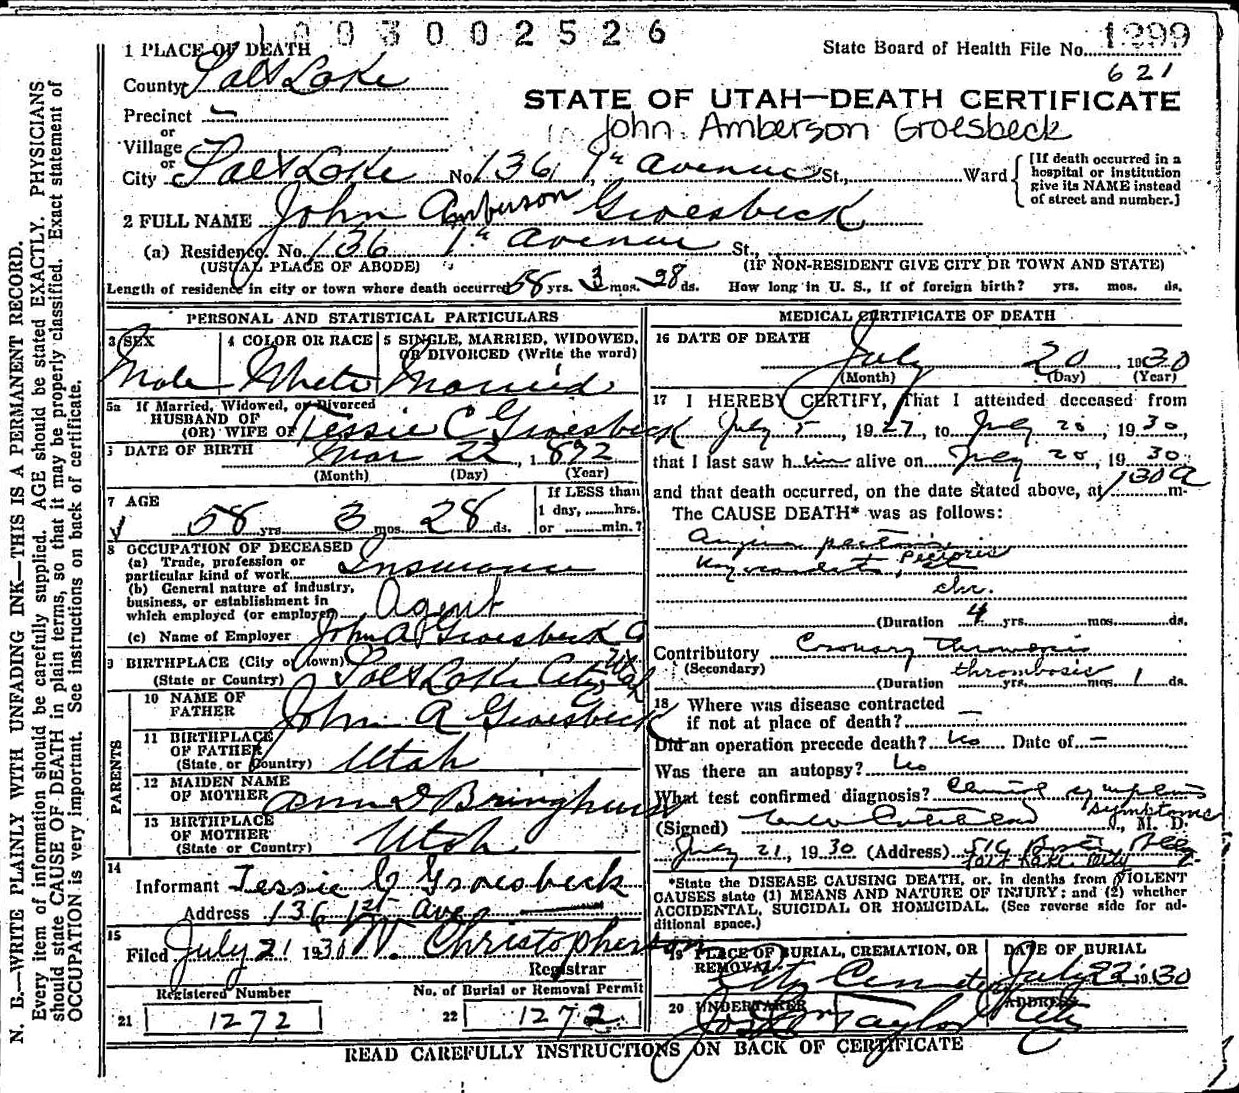 1003002526
1299
1 PLACE OF DEATH
State Board of Health File No.
621
County Salt Lake
STATE OF UTAH—DEATH CERTIFICATE
Precinct
John Amberson Groesbeck
or
Village
or
City Salt Lake No. 136 1st avenue St., Ward
[If death occurred in a hospital or institution give its NAME instead of street and number.]
2 FULL NAME John Amberson Groesbeck
(a) Residence. No. 136 1st avenue St.,
(USUAL PLACE OF ABODE) (IF NON-RESIDENT GIVE CITY OR TOWN AND STATE)
Length of residence in city or town where death occurred 58 yrs. 3 mos. 28 ds. How long in U. S., if of foreign birth? yrs. mos. ds.
PERSONAL AND STATISTICAL PARTICULARS
3 SEX 4 COLOR OR RACE 5 SINGLE, MARRIED, WIDOWED, OR DIVORCED (Write the word)
Male White Married
5a If Married, Widowed, or Divorced
HUSBAND OF
(OR) WIFE OF Tessie C Groesbeck
6 DATE OF BIRTH Mar 22, 1872
(Month) (Day) (Year)
7 AGE
58 yrs 3 mos 28 ds.
If LESS than
1 day, hrs.
or min.?
8 OCCUPATION OF DECEASED
(a) Trade, profession or
particular kind of work Insurance
(b) General nature of industry,
business, or establishment in
which employed (or employer) Agent
(c) Name of Employer John A Groesbeck Co
9 BIRTHPLACE (City or town)
(State or Country) Salt Lake City Utah
PARENTS
10 NAME OF
FATHER John A Groesbeck
11 BIRTHPLACE
OF FATHER
(State or Country) Utah
12 MAIDEN NAME
OF MOTHER Ann D Bringhurst
13 BIRTHPLACE
OF MOTHER
(State or Country) Utah
14
Informant Tessie C Groesbeck
Address 136 1st Ave
15
Filed July 21 1930 W. Christopherson
Registrar
Registered Number No. of Burial or Removal Permit
21 1272 22 1272
MEDICAL CERTIFICATE OF DEATH
16 DATE OF DEATH
July 20, 1930
(Month) (Day) (Year)
17 I HEREBY CERTIFY, That I attended deceased from
July 5, 1927, to July 20, 1930,
that I last saw him alive on July 20, 1930
and that death occurred, on the date stated above, at 130 a m.
The CAUSE DEATH* was as follows:
Angina pectoris
Pectoris
chr.
(Duration 4 yrs. mos. ds.
Contributory Coronary thrombosis
(Secondary) thrombosis
(Duration yrs. mos. 1 ds.
18 Where was disease contracted
if not at place of death? —
Did an operation precede death? No Date of —
Was there an autopsy? No
What test confirmed diagnosis? Clinical symptoms
symptoms
(Signed) , M. D.
July 21, 1930 (Address)
Salt Lake City
*State the DISEASE CAUSING DEATH, or, in deaths from VIOLENT
CAUSES state (1) MEANS AND NATURE OF INJURY; and (2) whether
ACCIDENTAL, SUICIDAL OR HOMICIDAL. (See reverse side for ad-
ditional space.)
19 PLACE OF BURIAL, CREMATION, OR REMOVAL DATE OF BURIAL
City Cemetery July 22 1930
20 UNDERTAKER ADDRESS
Jos Wm Taylor City
READ CAREFULLY INSTRUCTIONS ON BACK OF CERTIFICATE
N. B.—WRITE PLAINLY WITH UNFADING INK—THIS IS A PERMANENT RECORD.
Every item of information should be carefully supplied. AGE should be stated EXACTLY. PHYSICIANS
should state CAUSE OF DEATH in plain terms, so that it may be properly classified. Exact statement of
OCCUPATION is very important. See instructions on back of certificate.